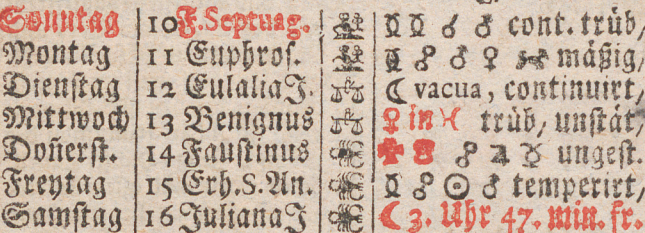 Sonntag 10 F. Septuag. cont. trüb/
Montag 11 Euphros. ☍ ♂ ♀ mäßig/
Dienstag 12 Eulalia J. ☾ vacua, continuirt/
Mittwoch 13 Benignus ♀ in ♓ trüb/ unstät/
Doñerst. 14 Faustinus ungest.
Freytag 15 Erh. S. An. ☍ ☉ ♂ temperirt/
Samstag 16 Juliana J ☾ 3. Uhr 47. min. fr.